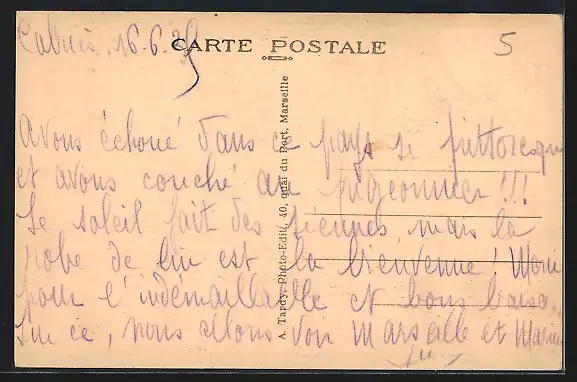 16.6.
CARTE POSTALE
5
Avons échoué dans ce pays si pittoresque
et avons couché au pigeonnier !!!
Le soleil fait des siennes, mais la
robe de lin est la bienvenue ! Merci
pour l'indémaillable et bons baisers.
Sur ce, nous allons voir Marseille et
A. Tardy, Photo-Edit., 40, quai du Port, Marseille